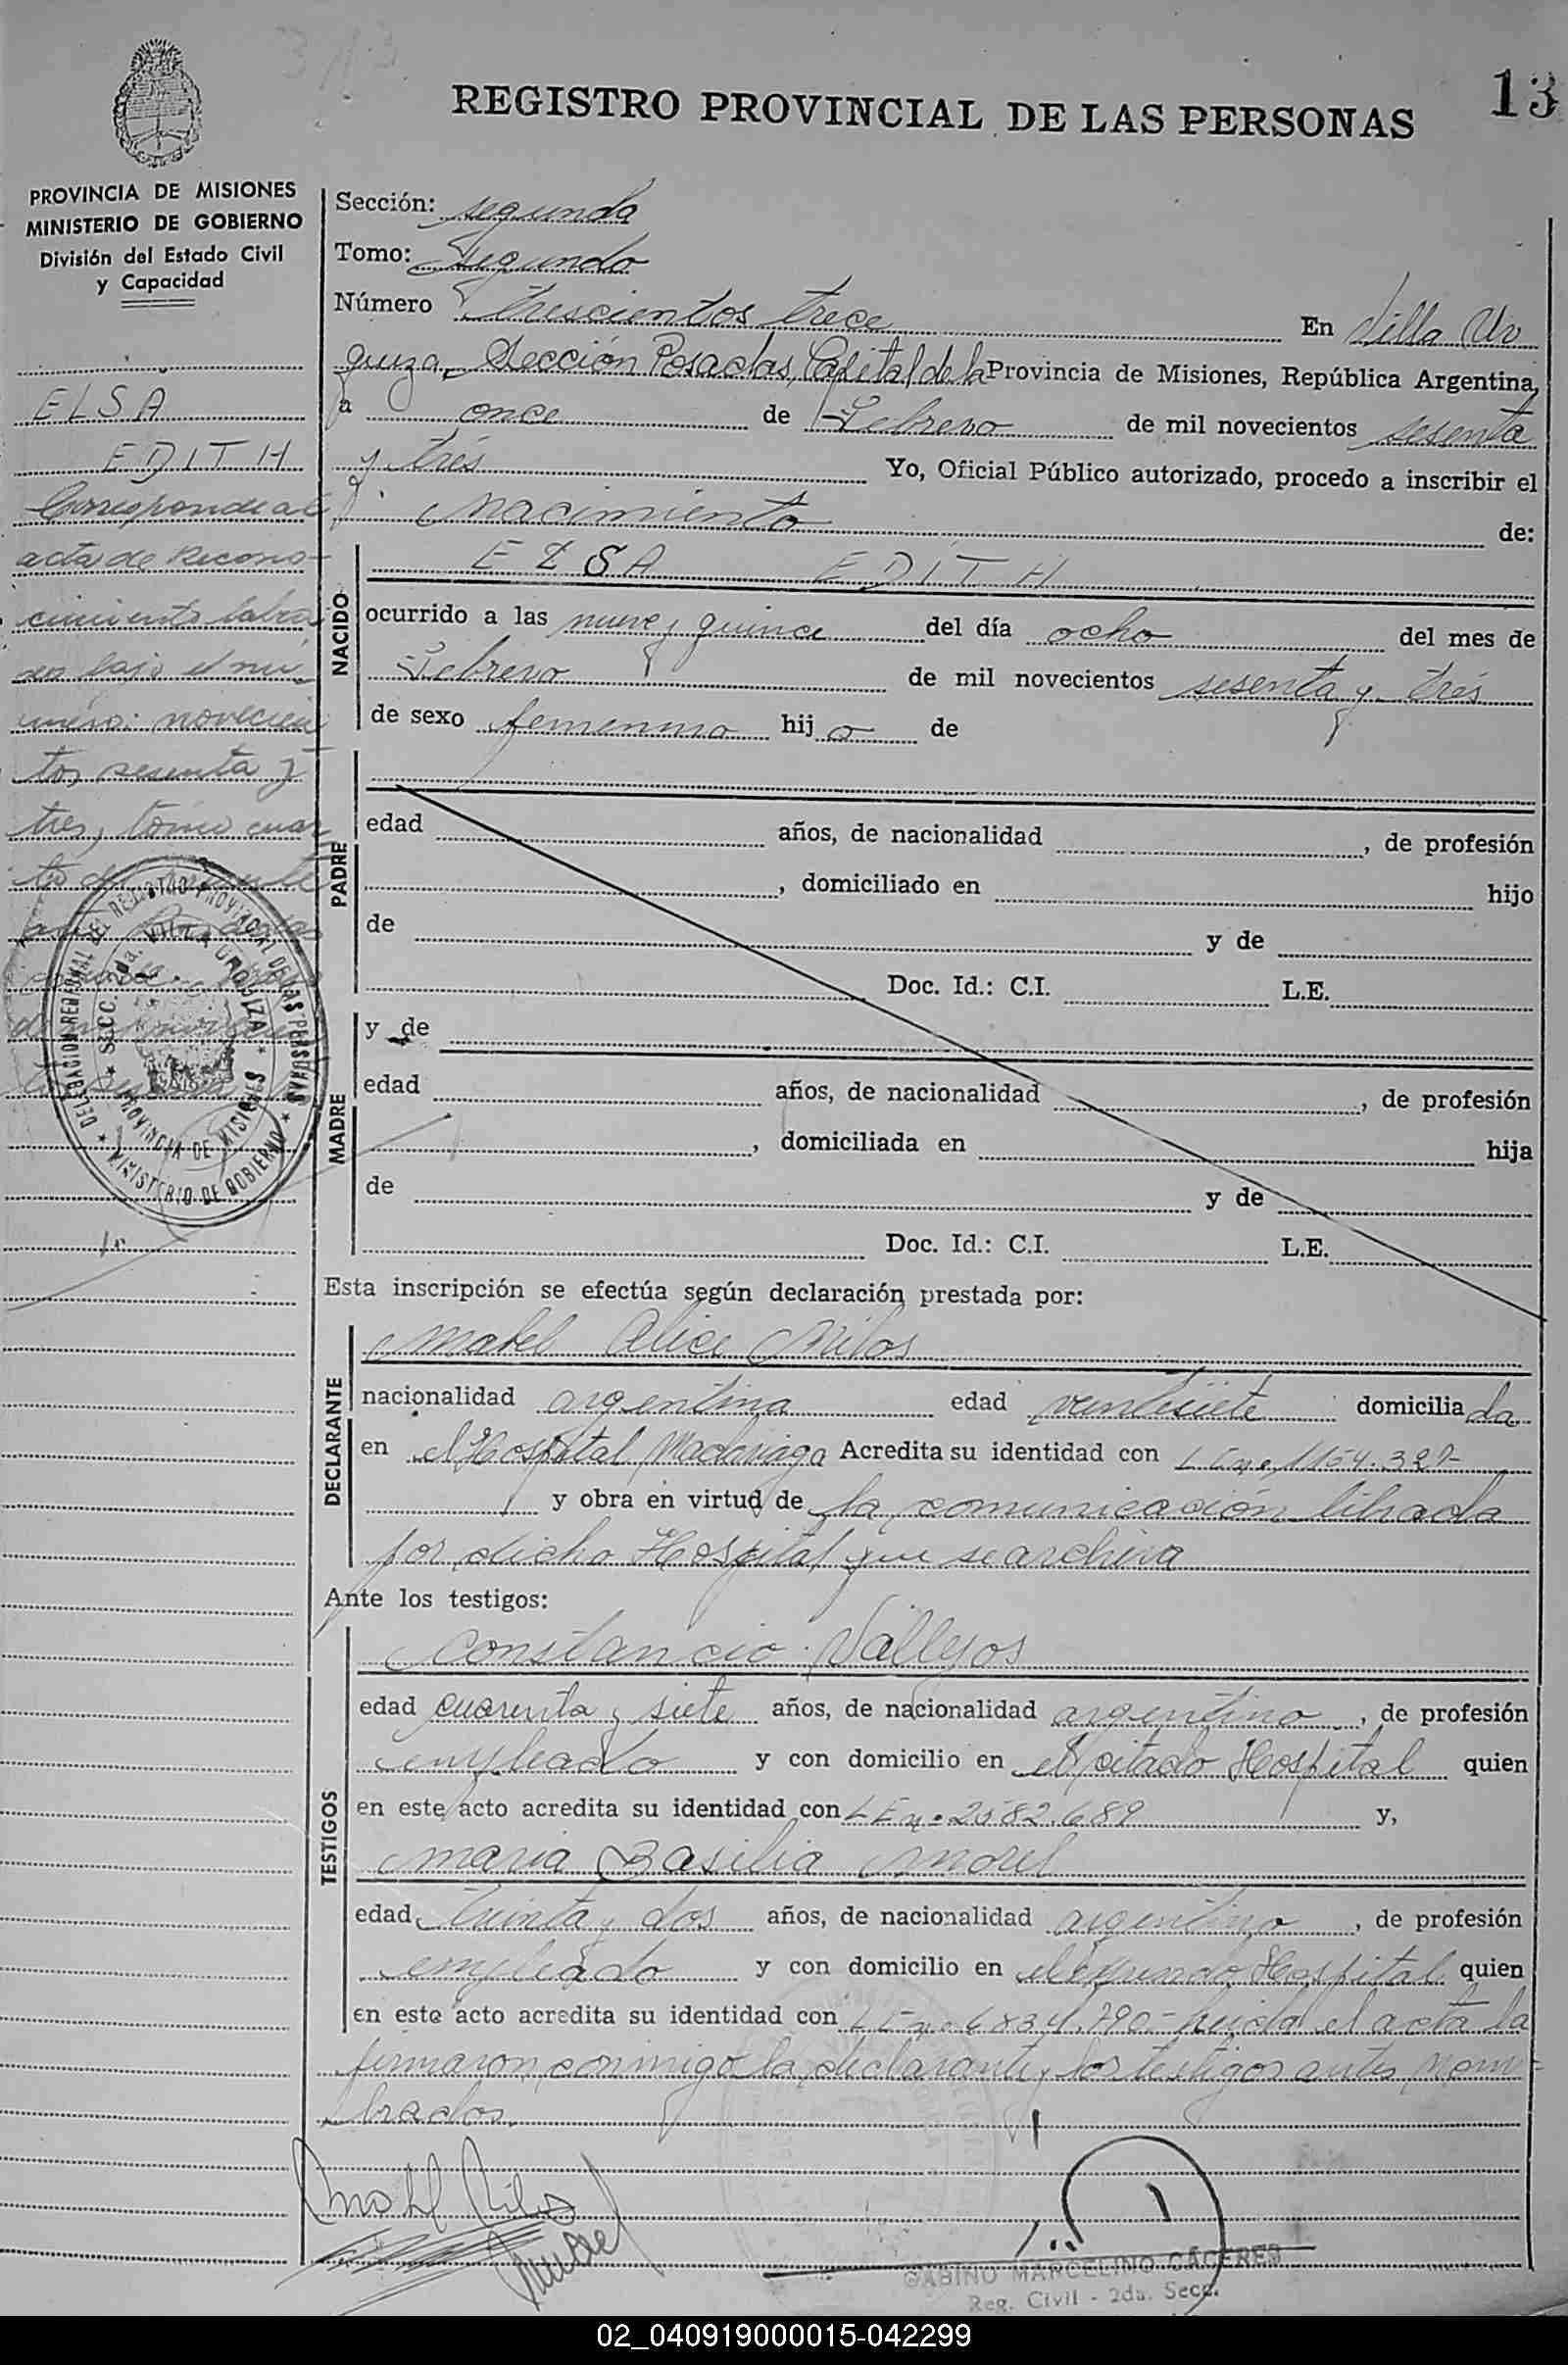 313
REGISTRO PROVINCIAL DE LAS PERSONAS
13
PROVINCIA DE MISIONES
MINISTERIO DE GOBIERNO
División del Estado Civil
y Capacidad
ELSA
EDITH
Corresponde al
acta de Recono-
cimiento labra
da bajo el nú
mero: novecien
tos sesenta y
tres, tomo cuar
to del
DELEGACION REGIONAL DEL REGISTRO PROVINCIAL DE LAS PERSONAS
SECC. 2da. VILLA URQUIZA
PROVINCIA DE MISIONES
MINISTERIO DE GOBIERNO
Sección: segunda
Tomo: segundo
Número trescientos trece En Villa Ur
quiza, Sección Posadas, Capital de la Provincia de Misiones, República Argentina,
a once de Febrero de mil novecientos sesenta
y trés Yo, Oficial Público autorizado, procedo a inscribir el
nacimiento de:
NACIDO
ELSA EDITH
ocurrido a las nueve y quince del día ocho del mes de
Febrero de mil novecientos sesenta y trés
de sexo femenino hij a de
PADRE
edad años, de nacionalidad , de profesión
, domiciliado en hijo
de y de
Doc. Id.: C.I. L.E.
MADRE
y de
edad años, de nacionalidad , de profesión
, domiciliada en hija
de y de
Doc. Id.: C.I. L.E.
Esta inscripción se efectúa según declaración prestada por:
DECLARANTE
Mabel Alice Milos
nacionalidad argentina edad veintisiete domicilia da
en el Hospital Madariaga Acredita su identidad con
y obra en virtud de la comunicación librada
por dicho Hospital que se archiva
Ante los testigos:
TESTIGOS
Constancio Vallejos
edad cuarenta y siete años, de nacionalidad argentino , de profesión
empleado y con domicilio en el citado Hospital quien
en este acto acredita su identidad con L E nº 2582.689 y,
Maria Basilia Morel
edad treinta y dos años, de nacionalidad argentina , de profesión
empleado y con domicilio en el Hospital quien
en este acto acredita su identidad con leida el acta la
firmaron conmigo la declarante y los testigos antes nom-
brados.
GABINO MARCELINO CÁCERES
Reg. Civil - 2da. Secc.
02_040919000015-042299